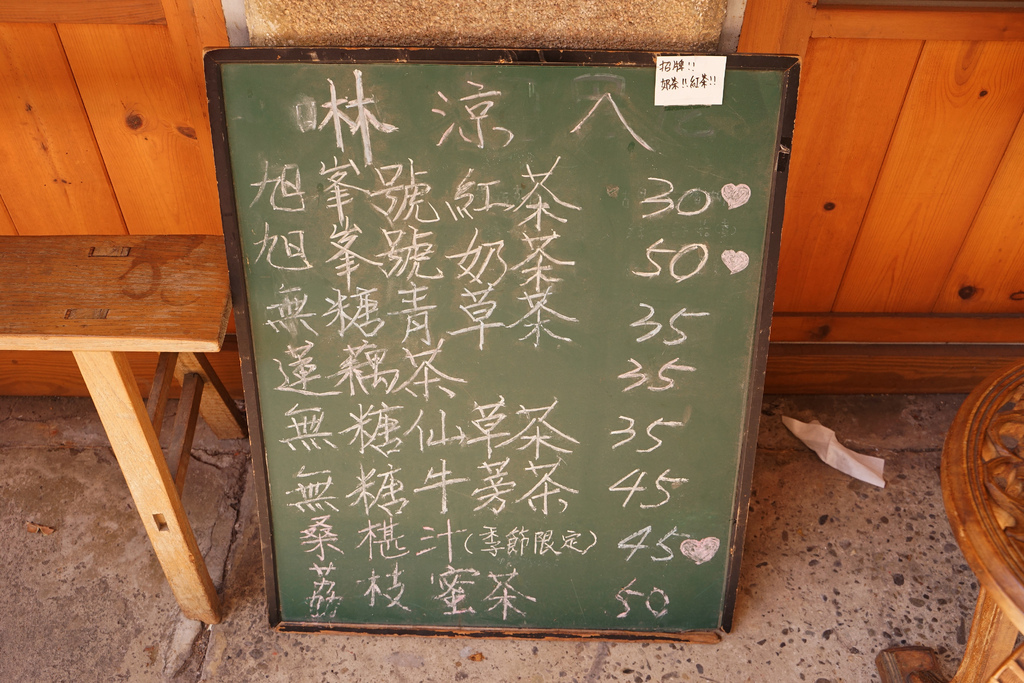 林涼八
招牌!!
奶茶!!紅茶!!
旭峯號紅茶 30
旭峯號奶茶 50
無糖青草茶 35
蓮藕茶 35
無糖仙草茶 35
無糖牛蒡茶 45
桑椹汁(季節限定) 45
荔枝蜜茶 50